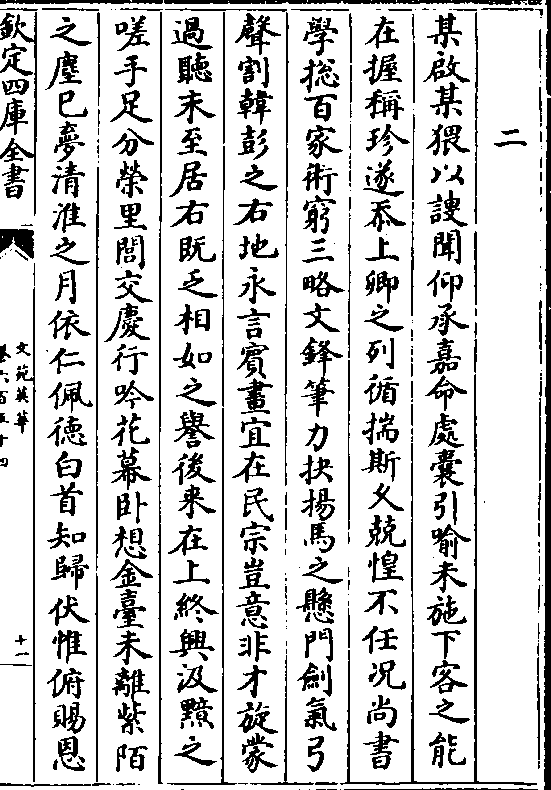 二
某啟某猥以謏聞仰承嘉命處囊引喻未施下客之能
在握稱珍遂忝上卿之列循揣斯久兢惶不任况尚書
學捴百家術窮三略文鋒筆力抉揚馬之懸門劍氣弓
聲割韓彭之右地永言賓畫宜在民宗豈意非才旋蒙
過聽末至居右既乏相如之譽後来在上終興汲黯之
嗟手足分榮里閭交慶行吟花幕卧想金臺未離紫陌
之塵已夢清淮之月依仁佩德白首知歸伏惟俯賜恩
欽定四庫全書
文苑英華
卷六百五十四
十一